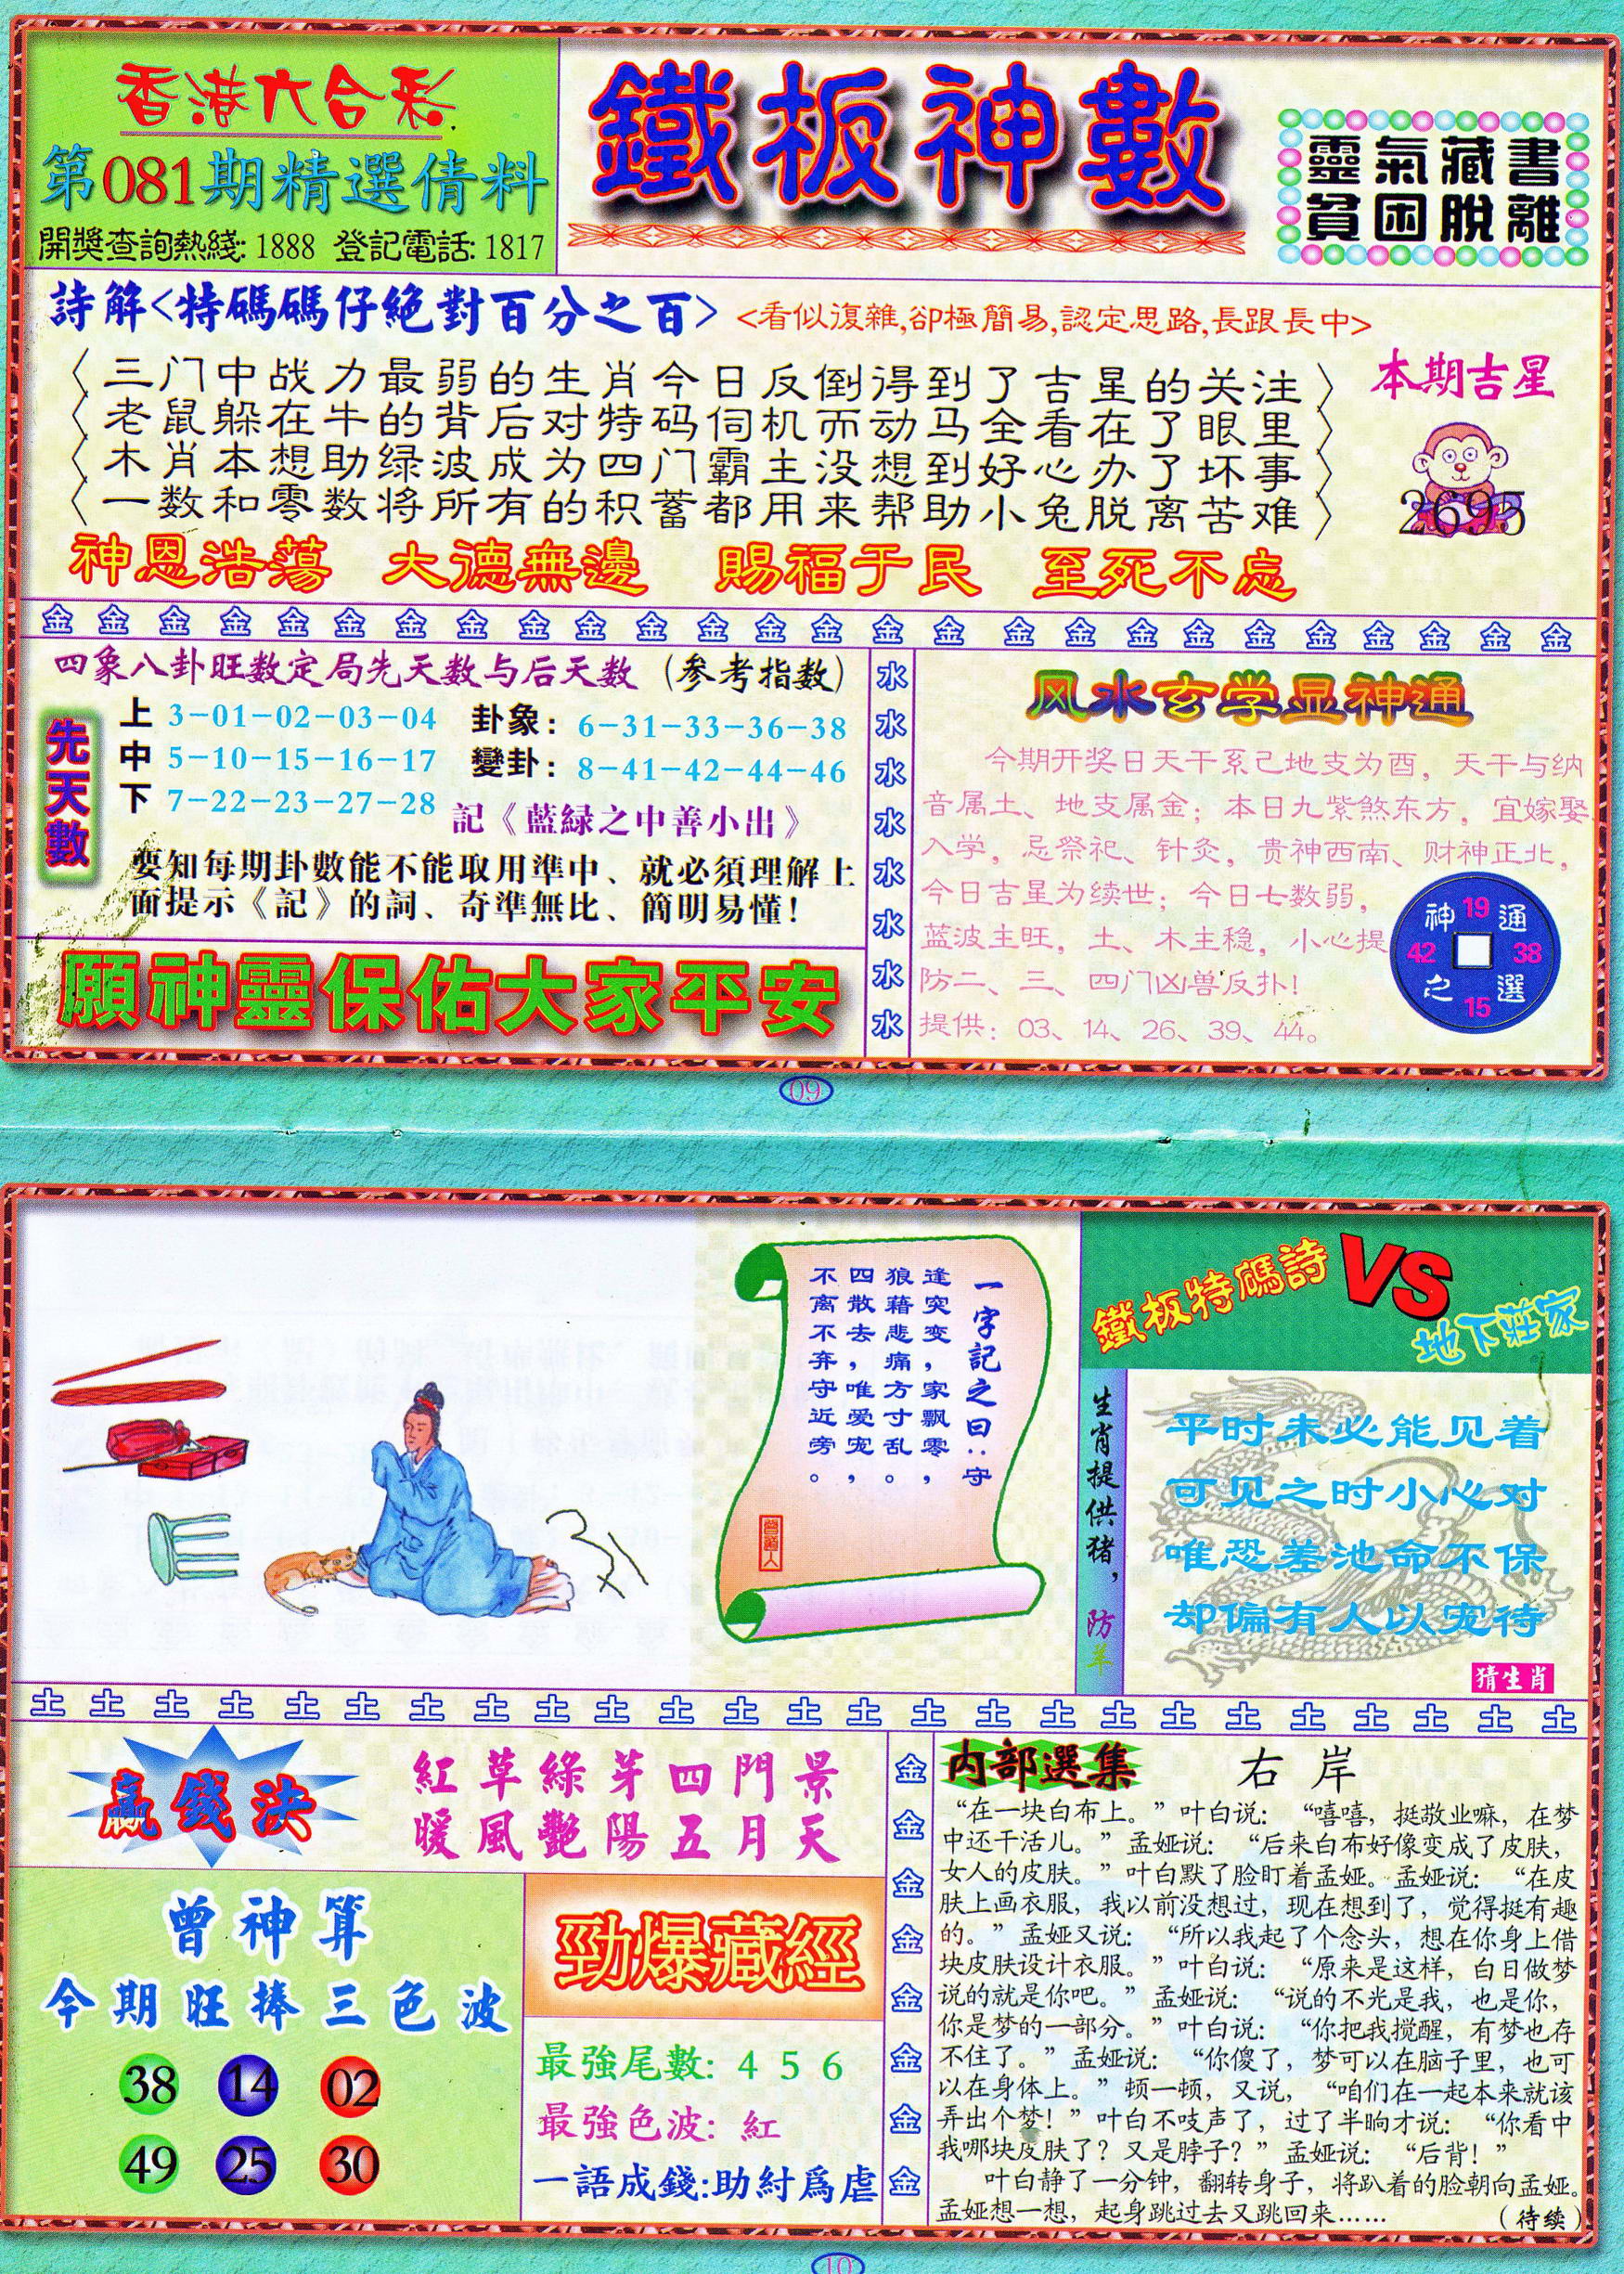 香港六合彩
第081期精選倩料
開獎查詢熱綫:1888 登記電話:1817
鐵板神數
靈氣藏書
貧困脫離
詩解<特碼碼仔絕對百分之百>
<看似復雜,卻極簡易,認定思路,長跟長中>
〈三门中战力最弱的生肖今日反倒得到了吉星的关注〉
〈老鼠躲在牛的背后对特码伺机而动马全看在了眼里〉
〈木肖本想助绿波成为四门霸主没想到好心办了坏事〉
〈一数和零数将所有的积蓄都用来帮助小兔脱离苦难〉
本期吉星
2695
神恩浩蕩 大德無邊 賜福于民 至死不忘
金 金 金 金 金 金 金 金 金 金 金 金 金 金 金 金 金 金 金 金 金 金 金 金 金 金
四象八卦旺数定局先天数与后天数(参考指数)
先天數
上 3-01-02-03-04 卦象: 6-31-33-36-38
中 5-10-15-16-17 變卦: 8-41-42-44-46
下 7-22-23-27-28 記《藍緑之中善小出》
要知每期卦數能不能取用準中、就必須理解上
面提示《記》的詞、奇準無比、簡明易懂!
願神靈保佑大家平安
水
水
水
水
水
水
水
水
风水玄学显神通
今期开奖日天干系己地支为酉,天干与纳
音属土、地支属金;本日九紫煞东方,宜嫁娶
入学,忌祭祀、针灸,贵神西南、财神正北,
今日吉星为续世;今日七数弱,
蓝波主旺,土、木主稳,小心提
防二、三、四门凶兽反扑!
提供:03、14、26、39、44。
神 19 通
42 38
之 15 選
09
一字記之曰:守
逢突变,家飘零,
狼藉悲痛方寸乱。
四散去,唯爱宠,
不离不弃守近旁。
曾道人
鐵板特碼詩
VS
地下莊家
生肖提供猪,防羊
平时未必能见着
可见之时小心对
唯恐差池命不保
却偏有人以宠待
猜生肖
土 土 土 土 土 土 土 土 土 土 土 土 土 土 土 土 土 土 土 土 土 土 土 土 土
贏錢決
紅草綠芽四門景
暖風艷陽五月天
曾神算
今期旺捧三色波
38 14 02
49 25 30
勁爆藏經
最強尾數: 4 5 6
最強色波: 紅
一語成錢:助紂爲虐
金
金
金
金
金
金
金
金
内部選集 右岸
“在一块白布上。”叶白说:“嘻嘻,挺敬业嘛,在梦
中还干活儿。”孟娅说:“后来白布好像变成了皮肤,
女人的皮肤。”叶白默了脸盯着孟娅。孟娅说:“在皮
肤上画衣服,我以前没想过,现在想到了,觉得挺有趣
的。”孟娅又说:“所以我起了个念头,想在你身上借
块皮肤设计衣服。”叶白说:“原来是这样,白日做梦
说的就是你吧。”孟娅说:“说的不光是我,也是你,
你是梦的一部分。”叶白说:“你把我搅醒,有梦也存
不住了。”孟娅说:“你傻了,梦可以在脑子里,也可
以在身体上。”顿一顿,又说,“咱们在一起本来就该
弄出个梦!”叶白不吱声了,过了半晌才说:“你看中
我哪块皮肤了?又是脖子?”孟娅说:“后背!”
叶白静了一分钟,翻转身子,将趴着的脸朝向孟娅。
孟娅想一想,起身跳过去又跳回来……
(待续)
10